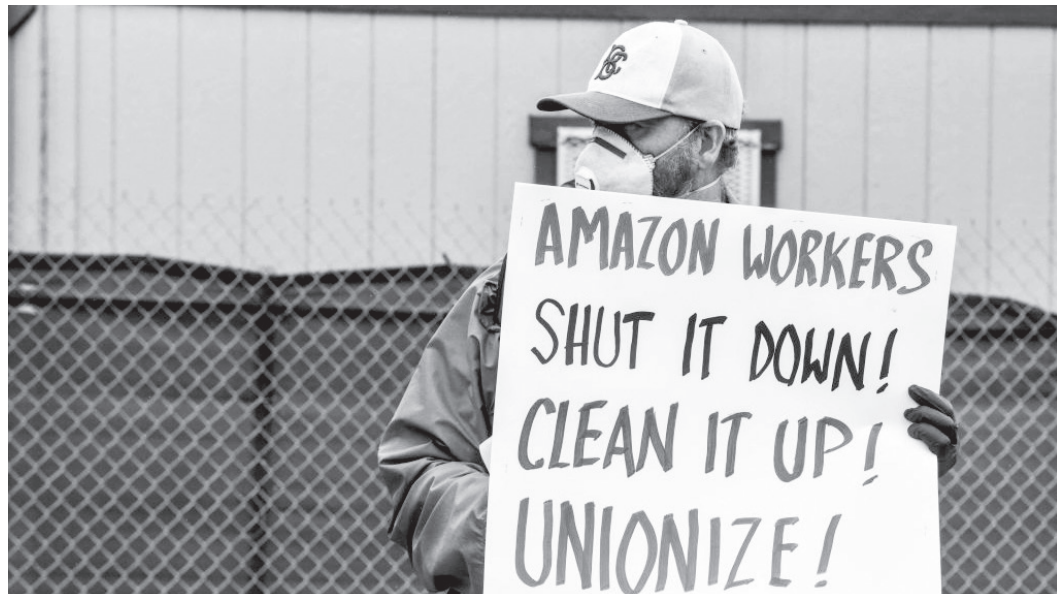 AMAZON WORKERS
SHUT IT DOWN!
CLEAN IT UP!
UNIONIZE!